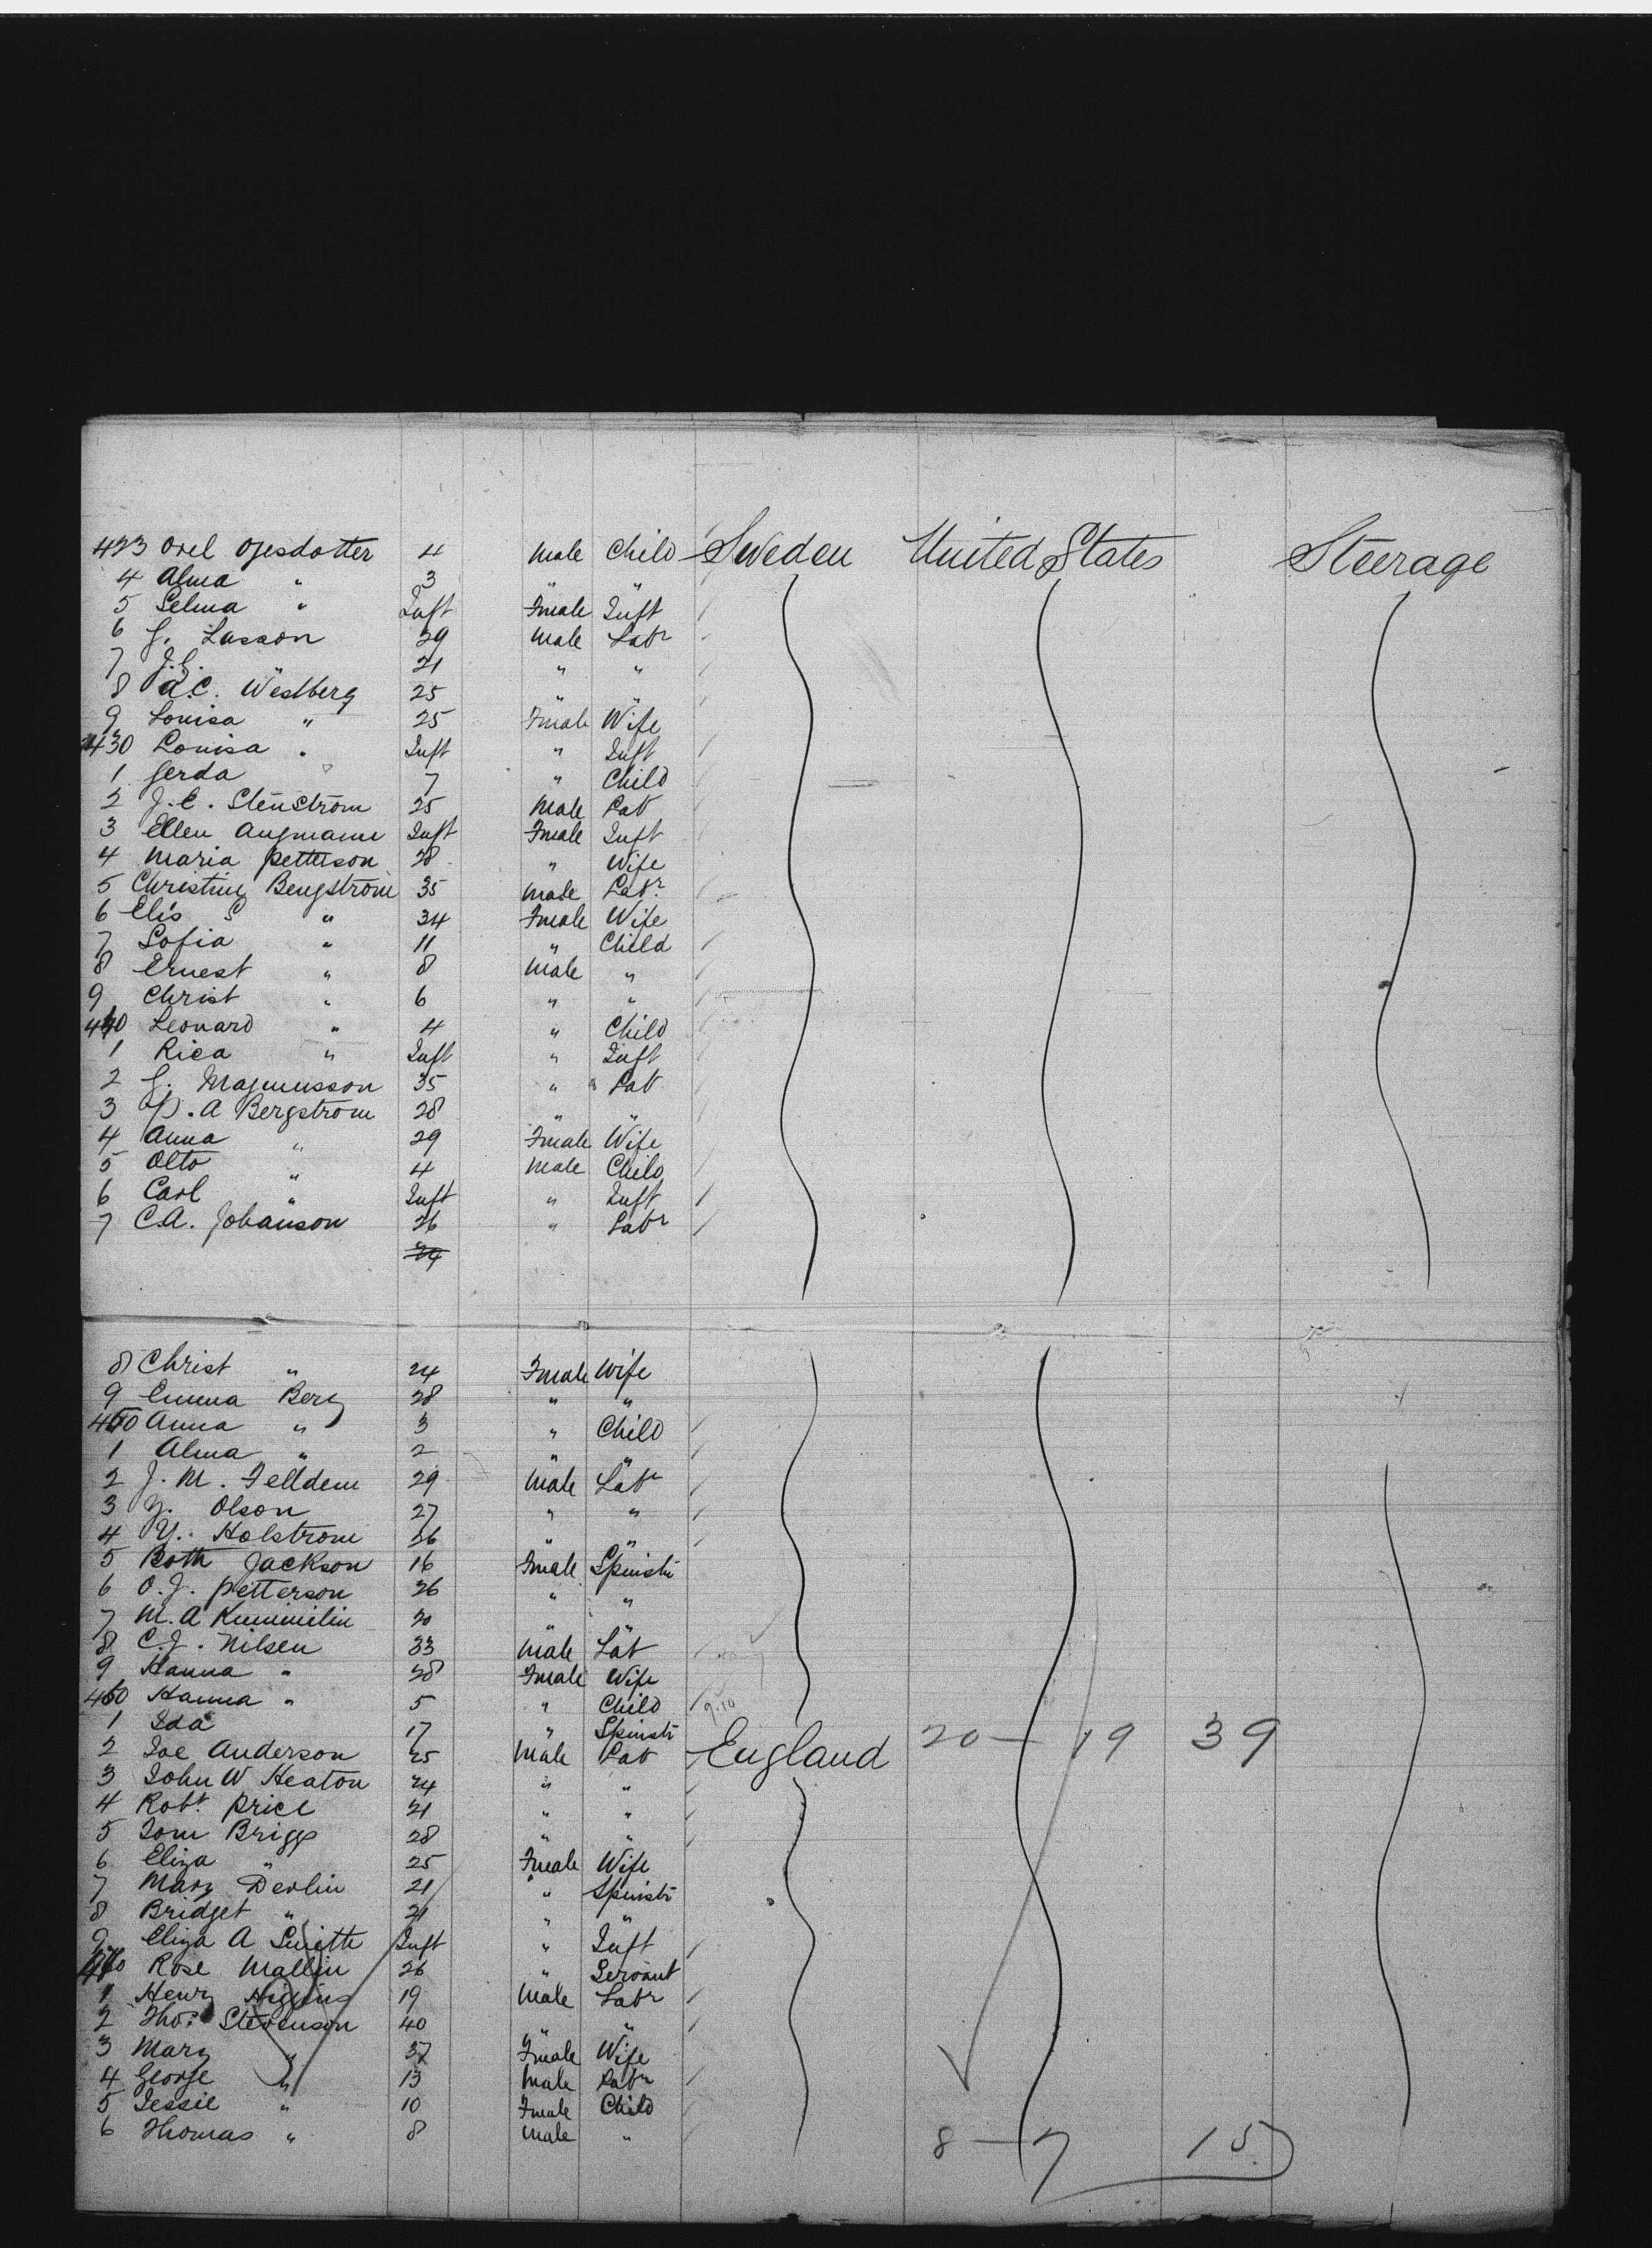 423 Orel Ojesdotter 4 Male Child Sweden United States Steerage
4 Alma " 3 " "
5 Selma " Inft Fmale Inft
6 G. Lasson 29 Male Labr
7 J.G. " 21 " "
8 A.C. Westberg 25 " "
9 Louisa " 25 Fmale Wife
430 Louisa " Inft " Inft
1 Gerda 7 " Child
2 J.E. Stenstrom 25 Male Lab
3 Ellen Augmann Inft Fmale Inft
4 Maria Petterson 28 " Wife
5 Christine Bengstrom 35 Male Labr
6 Elis S " 34 Fmale Wife
7 Sofia " 11 " Child
8 Ernest " 8 Male "
9 Christ " 6 " "
440 Leonard " 4 " Child
1 Rica " Inft " Inft
2 G. Magnusson 35 " Lab
3 P.A Bergstrom 28 " "
4 Anna " 29 Fmale Wife
5 Otto " 4 Male Child
6 Carl " Inft " Inft
7 C.A. Johanson 26 " Labr
24
8 Christ " 24 Fmale Wife
9 Emma Berg 28 " "
450 Anna " 3 " Child
1 Alma " 2 " "
2 J.M. Felldem 29 Male Labr
3 Y. Olson 27 " "
4 Y. Holstrom 26 " "
5 Both Jackson 16 Fmale Spinstr
6 O.J. Petterson 26 " "
7 M.A Kummelin 20 " "
8 C.J. Nilsen 33 Male Lab
9 Hanna " 28 Fmale Wife
460 Hanna " 5 " Child 9.10
1 Ida 17 " Spinstr
2 Joe Anderson 25 Male Lab England 20 — 19 39
3 John W Heaton 24 " "
4 Robt. Price 21 " "
5 Tom Briggs 28 " "
6 Eliza " 25 Fmale Wife
7 Mary Devlin 21 " Spinstr
8 Bridget " 21 " "
9 Eliza A Smith Inft " Inft
470 Rose Mallin 26 " Servant
1 Henry Higgins 19 Male Labr
2 Thos Stevenson 40 " "
3 Mary " 37 Fmale Wife
4 George " 13 Male Labr
5 Jessie " 10 Fmale Child
6 Thomas " 8 Male " 8 — 7 15